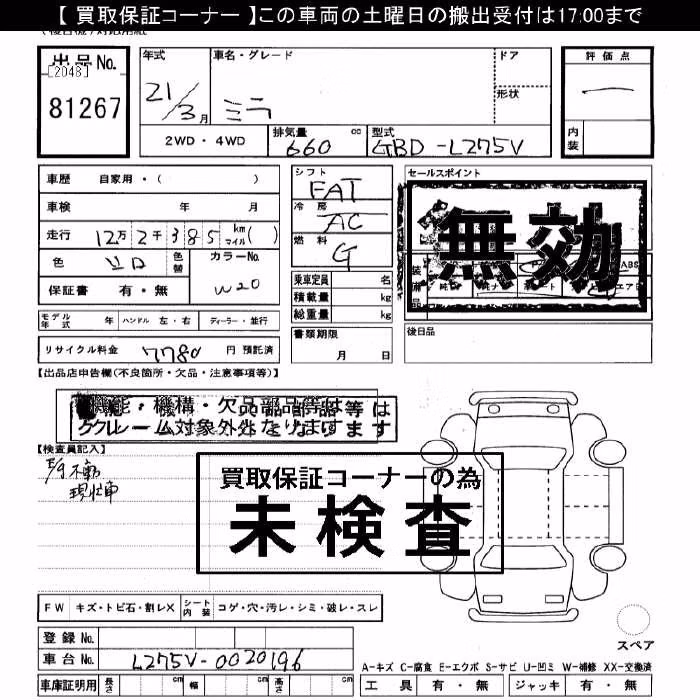 【 買取保証コーナー 】この車両の土曜日の搬出受付は17:00まで
出品No.
[2048]
81267
年式
21/3月
車名・グレード
ミラ
ドア
形状
評価点
内装
2WD・4WD
排気量
660 cc
型式
GBD-L275V
車歴 自家用・( )
車検 年 月
走行 12万2千385 km マイル( )
色 シロ
色替
カラーNo.
W20
保証書 有・無
モデル年式 年
ハンドル 左・右
ディーラー・並行
リサイクル料金 7780 円 預託済
シフト
FAT
冷房
AC
燃料
G
乗車定員 名
積載量 kg
総重量 kg
書類期限
月 日
セールスポイント
無効
後日品
【出品店申告欄(不良箇所・欠品・注意事項等)】
機能・機構・欠品部品等は
クレーム対象外となります
【検査員記入】
E/g不動
現状車
買取保証コーナーの為
未検査
FW キズ・トビ石・割レX
シート内装 コゲ・穴・汚レ・シミ・破レ・スレ
登録No.
車台No. L275V-0020196
車庫証明用 長さ cm 幅 cm 高さ cm
スペア
A-キズ C-腐食 E-エクボ S-サビ U-凹ミ W-補修 XX-交換済
工具 有・無 ジャッキ 有・無